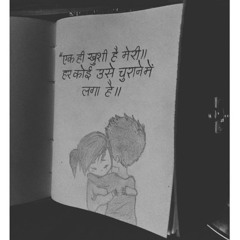 "एक ही खुशी है मेरी॥
हर कोई उसे चुराने में
लगा है॥